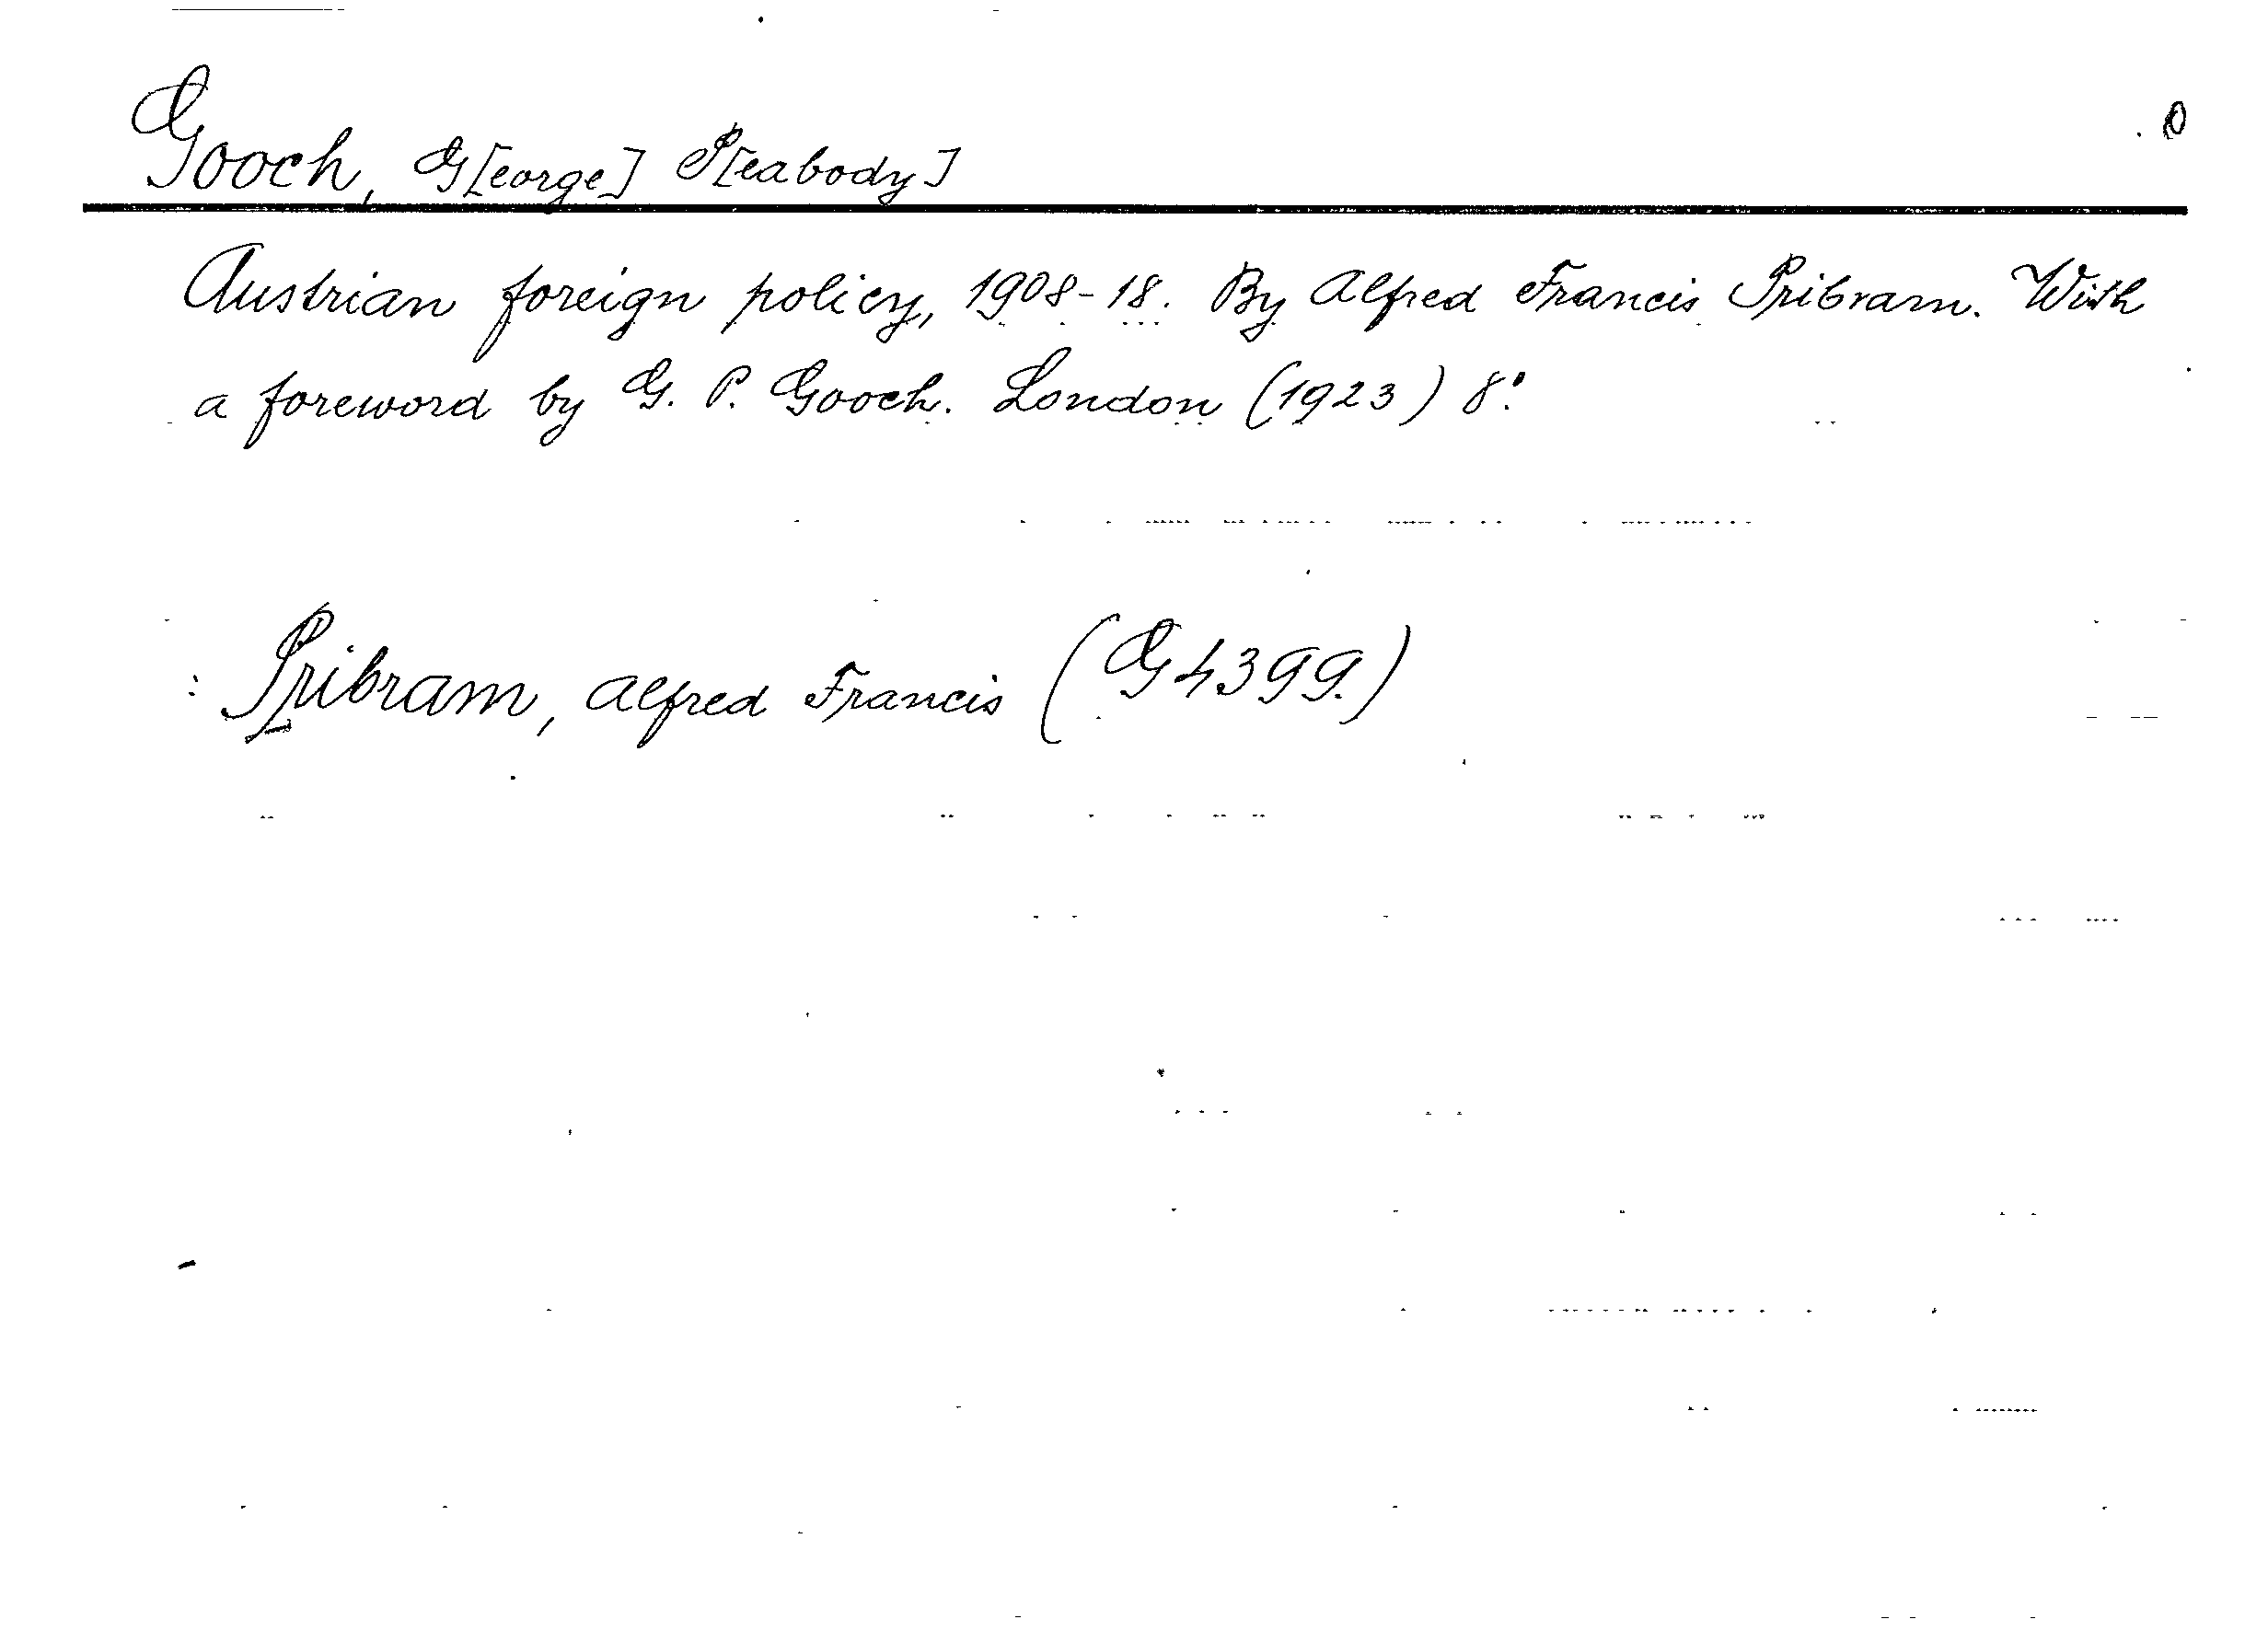 Gooch, G[eorge] P[eabody]
Austrian foreign policy, 1908-18. By Alfred Francis Pribram. With
a foreword by G. P. Gooch. London (1923) 8°.
: Pribram, Alfred Francis (G4399.)